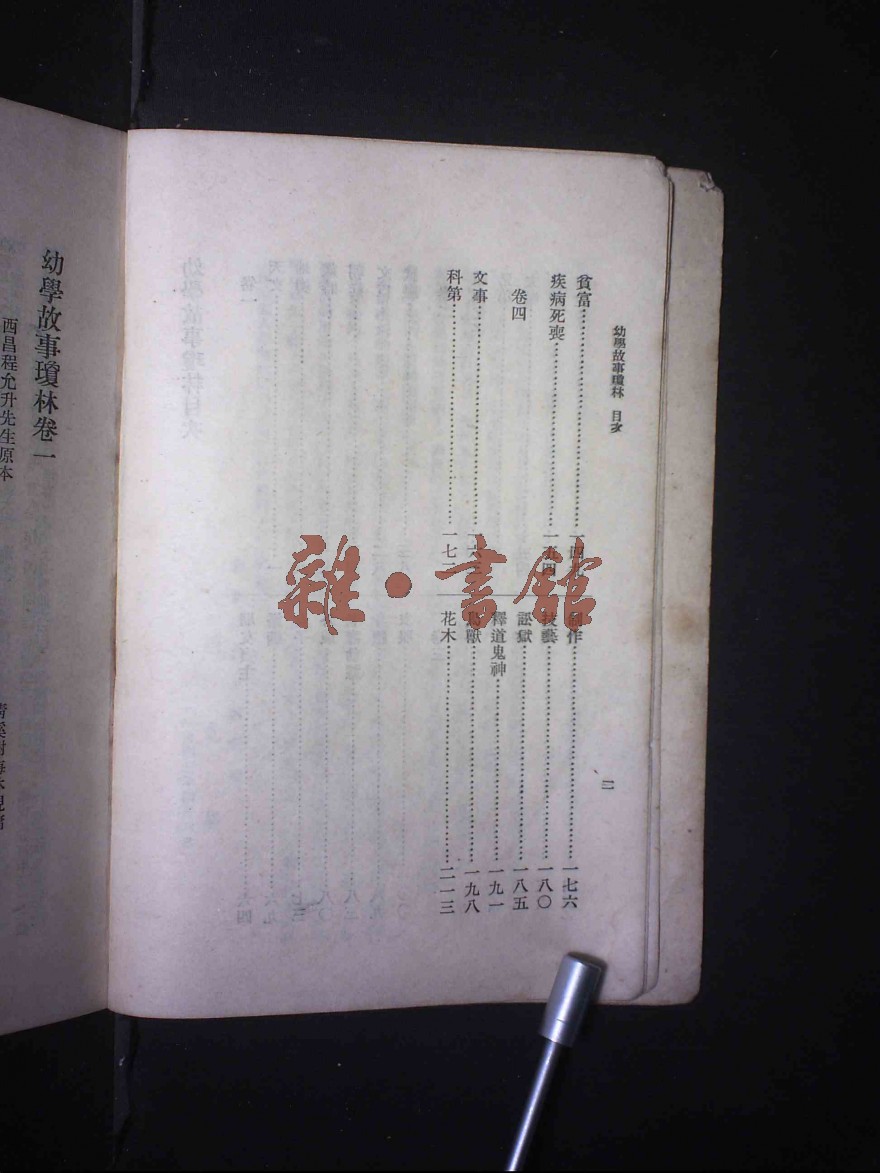 幼學故事瓊林 目次
貧富
疾病死喪 一五四
卷四
文事
科第 一七
制作 一七六
技藝 一八〇
訟獄 一八五
釋道鬼神 一九一
鳥獸 一九八
花木 二一三
幼學故事瓊林卷一
西昌程允升先生原本
雜·書館